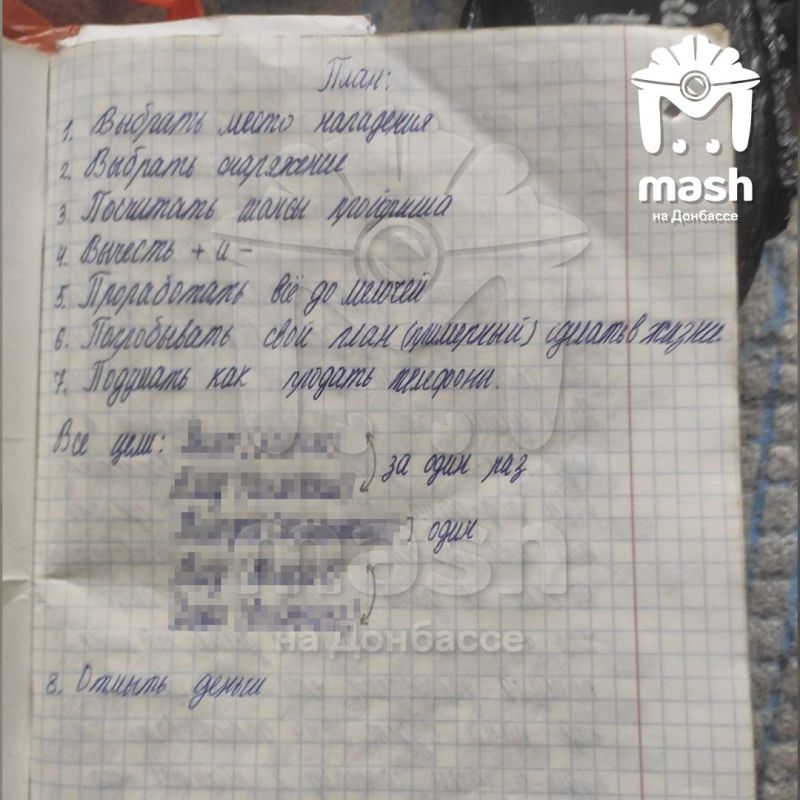 mash
на Донбассе
План:
1. Выбрать место нападения
2. Выбрать снаряжение
3. Посчитать шансы пройгрыша
4. Вычесть + и -
5. Проработать всё до мелочей
6. Попробывать свой план (примерный) сделать в жизни
7. Подумать как продать телефоны.
Все цели:
за один раз
один
mash
на Донбассе
8. Отмыть деньги